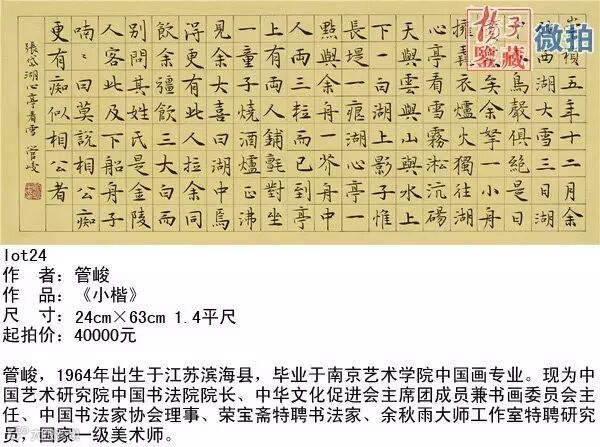 微拍
鑒藏
崇禎五年十二月余
住西湖大雪三日湖
中人鳥聲俱絕是日
更定矣余拏一小舟
擁毳衣爐火獨往湖
心亭看雪霧淞沆碭
天與雲與山與水上
下一白湖上影子惟
長堤一痕湖心亭一
點與余舟一芥舟中
人兩三粒而已到亭
上有兩人鋪氈對坐
一童子燒酒爐正沸
見余大喜曰湖中焉
得更有此人拉余同
飲余彊飲三大白而
別問其姓氏是金陵
人客此及下船舟子
喃喃曰莫說相公痴
更有痴似相公者
張岱湖心亭看雪 管峻
lot24
作 者：管峻
作 品：《小楷》
尺 寸：24cm×63cm 1.4平尺
起拍价：40000元
管峻，1964年出生于江苏滨海县，毕业于南京艺术学院中国画专业。现为中
国艺术研究院中国书法院院长、中华文化促进会主席团成员兼书画委员会主
任、中国书法家协会理事、荣宝斋特聘书法家、余秋雨大师工作室特聘研究
员，国家一级美术师。